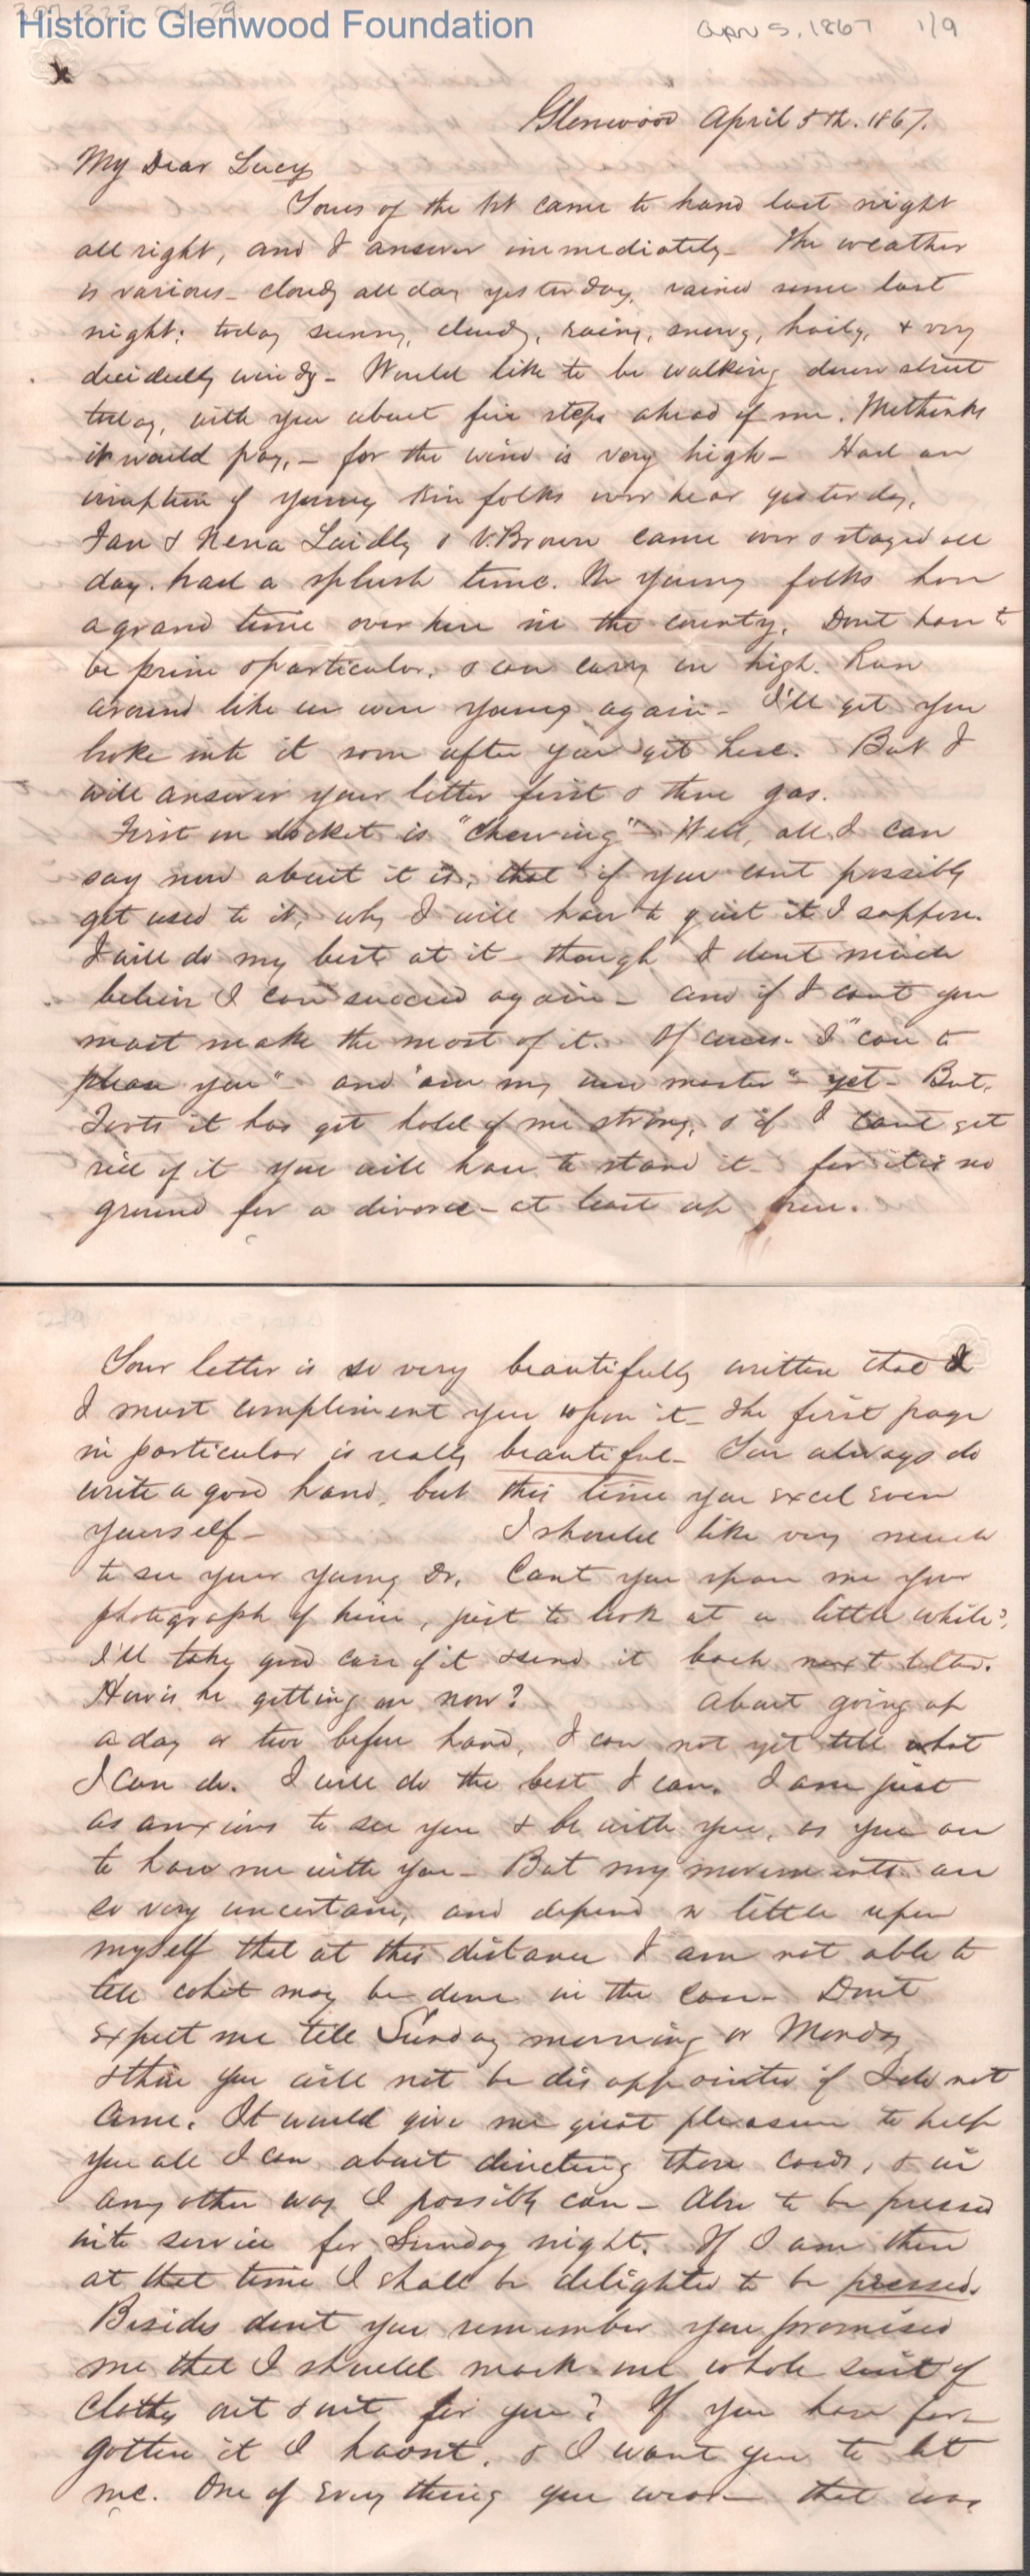 Historic Glenwood Foundation
Apr 5, 1867 1/9
Glenwood April 5th. 1867.
My Dear Lucy
Yours of the 1st came to hand last night
all right, and I answer immediately - The weather
is various - cloudy all day yesterday, rained some last
night: today sunny, cloudy, rainy, snowy, haily, & very
decidedly windy - Would like to be walking down street
today, with you about five steps ahead of me. Methinks
it would pay, - for the wind is very high - Had an
irruption of young kin folks over hear yesterday.
Fan & Nena Laidly & V. Brown came over & stayed all
day. had a splush time. The young folks have
a grand time over here in the county. Dont have to
be prim & particular. & can carry on high. Run
around like we were young again - I'll get you
broke into it soon after you get here. But I
will answer your letter first & then gas.
First on docket is "Chewing" - Well, all I can
say now about it is, that if you cant possibly
get used to it, why I will have to quit it I suppose.
I will do my best at it - though I dont much
believe I can succeed again - and if I cant you
must make the most of it. Of course I "can to
please you" - and "am my own master" - yet - But,
it has got hold of me strong, & if I cant get
rid of it you will have to stand it - for it is no
ground for a divorce - at least up here.
Your letter is so very beautifully written that I
I must compliment you upon it - The first page
in particular is really beautiful - You always do
write a good hand, but this time you excel even
yourself - I should like very much
to see your young Dr. Cant you spare me your
photograph of him, just to look at a little while?
I'll take good care of it & send it back next letter.
How is he getting on now? About going up
a day or two before hand, I can not yet tell what
I can do. I will do the best I can. I am just
as anxious to see you & be with you, as you are
to have me with you - But my movements are
so very uncertain, and depend so little upon
myself that at this distance I am not able to
tell what may be done in the case - Dont
expect me till Sunday morning or Monday
& then you will not be disappointed if I do not
come. It would give me great pleasure to help
you all I can about directing those cards, & in
any other way I possibly can - Also to be pressed
into service for Sunday night. If I am there
at that time I shall be delighted to be pressed.
Besides dont you remember you promised
me that I should mark one whole suit of
clothes out & out for you? If you have for-
gotten it I havnt, & I want you to let
me. One of every thing you wear - that was